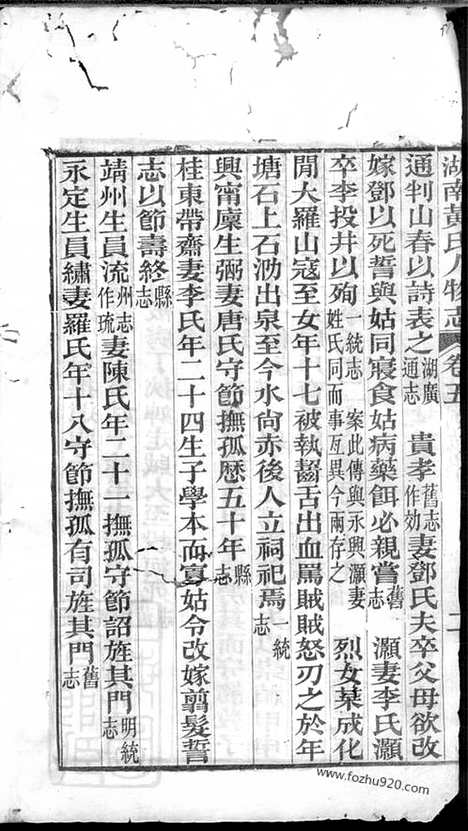 湖南黃氏人物志 卷五 二
通判山春以詩表之湖廣通志 貴孝舊志作効妻鄧氏夫卒父母欲改
嫁鄧以死誓與姑同寢食姑病藥餌必親嘗舊志 灝妻李氏灝
卒李投井以殉一統志 案此傳與永興灝妻姓氏同而事互異今兩存之 烈女某成化
閒大羅山寇至女年十七被執齧舌出血罵賊賊怒刃之於年
塘石上石泐出泉至今水尙赤後人立祠祀焉一統志
興甯廩生弼妻唐氏守節撫孤歷五十年縣志
桂東帶齋妻李氏年二十四生子學本而寡姑令改嫁翦髮誓
志以節壽終縣志
靖州生員流州志作琉妻陳氏年二十一撫孤守節詔旌其門明統志
永定生員繡妻羅氏年十八守節撫孤有司旌其門舊志
www.fozhu920.com